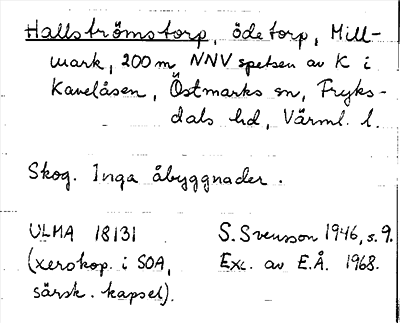 Hallströmstorp, ödetorp, Mill-
mark, 200 m NNV spetsen av K i
Kavelåsen, Östmarks sn, Fryks-
dals hd, Värml. l.
Skog. Inga åbyggnader.
ULMA 18131 S. Svensson 1946, s. 9.
(xerokop. i SOA, Exc. av E.Å. 1968.
särsk. kapsel).